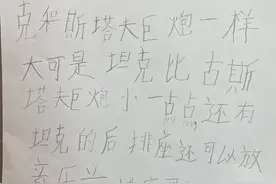 克和斯塔夫巨炮一样
大可是坦克比古斯
塔夫巨炮小一点点,还有
坦克的后排座还可以放
音乐